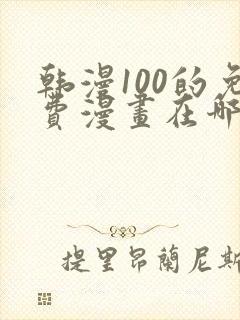 韩漫100的免
费漫畫在哪
提里昂蘭尼斯